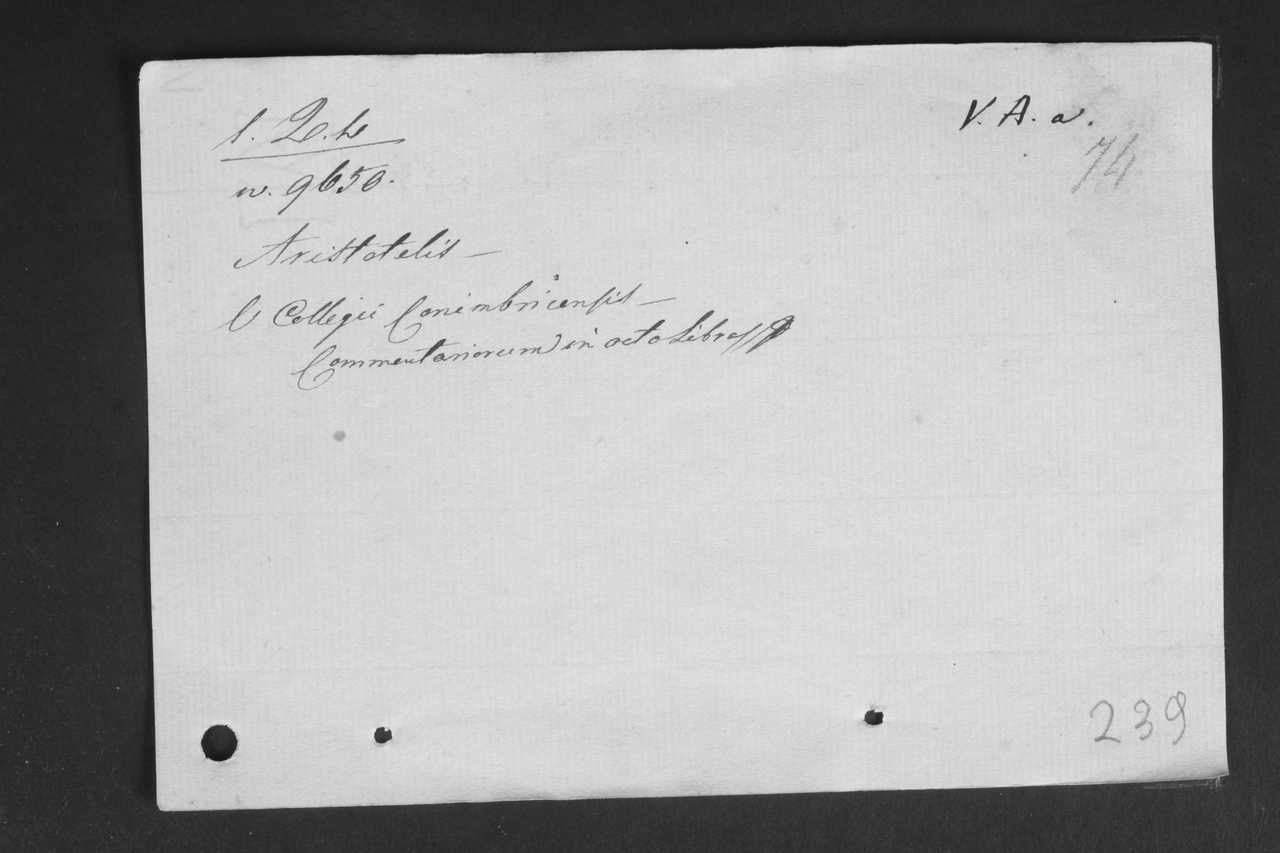 V. A. a.
74
n. 9650.
Aristotelis —
Collegii Conimbricensis —
Commentariorum in octo Libros
239